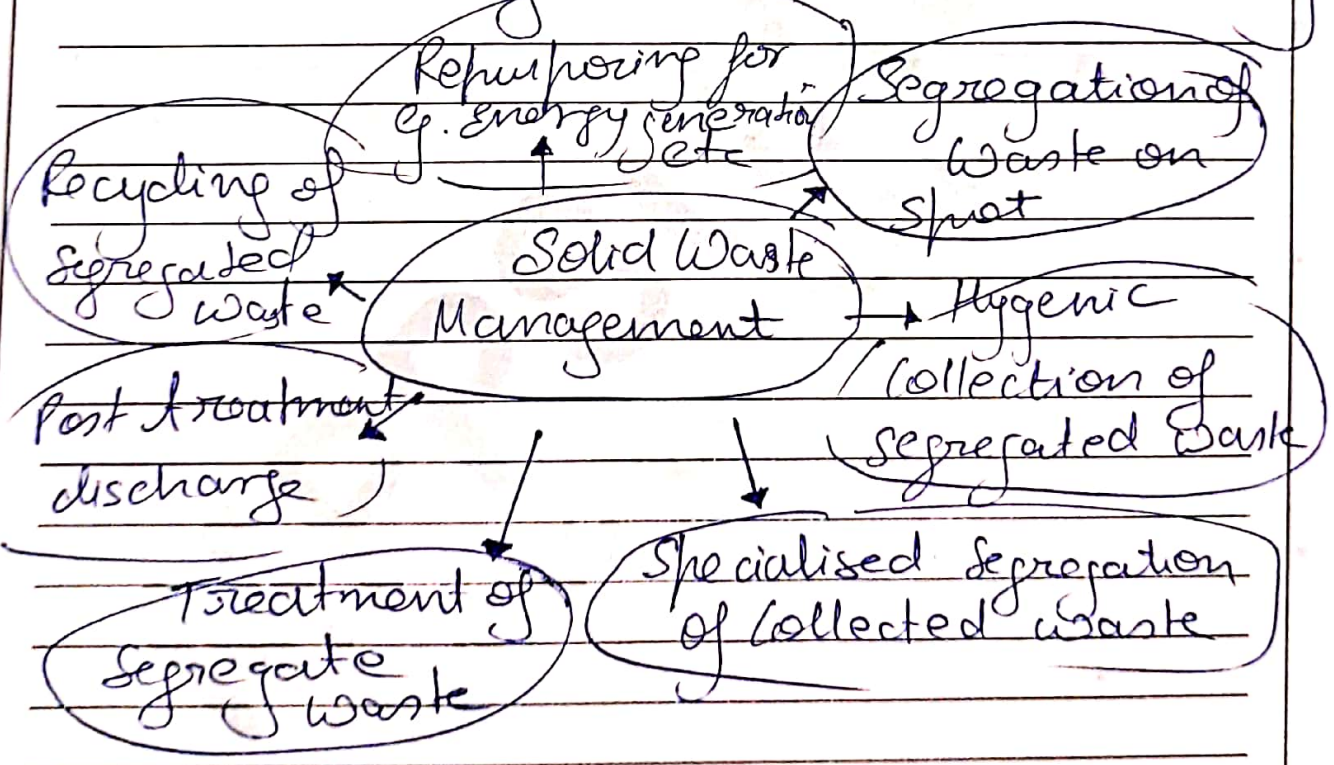 Repurposing for
eg. Energy generation
etc
Segregation of
Waste on
Spot
Recycling of
Segregated
waste
Solid Waste
Management
Hygenic
Collection of
segregated Waste
Post treatment
discharge
Treatment of
Segregate
waste
Specialised Segregation
of Collected waste